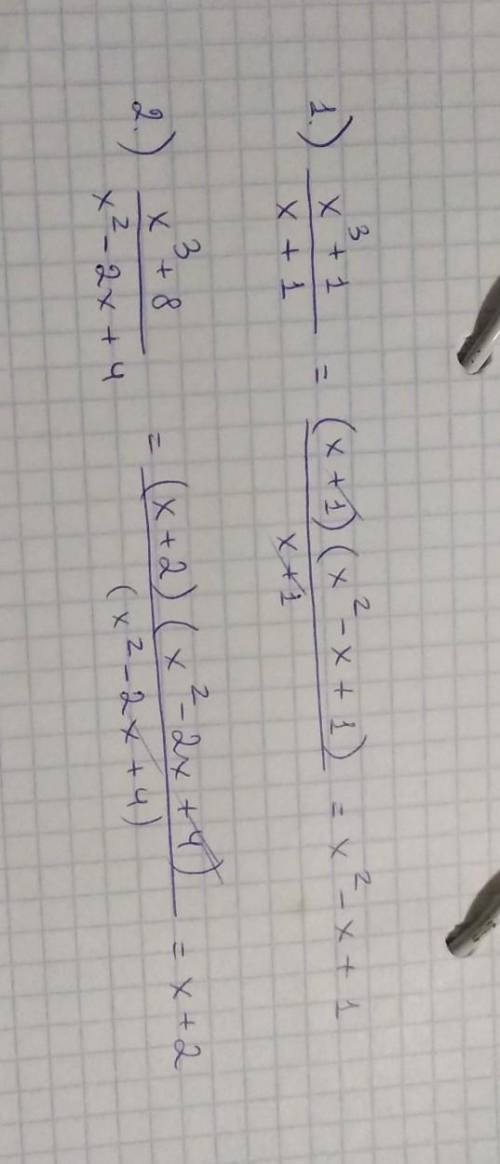 1.) (x³ + 1)/(x + 1) = ((x + 1)(x² - x + 1))/(x + 1) = x² - x + 1
2.) (x³ + 8)/(x² - 2x + 4) = ((x + 2)(x² - 2x + 4))/((x² - 2x + 4)) = x + 2